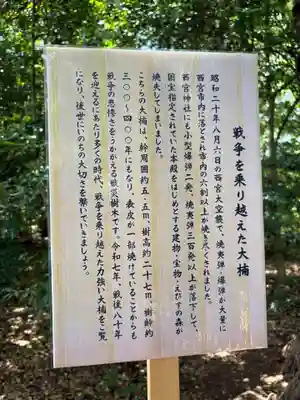 戦争を乗り越えた大楠
昭和二十年八月六日の西宮大空襲で、焼夷弾・爆弾が大量に
西宮市内に落とされ市内の六割以上が焼き尽くされました。
西宮神社にも小型爆弾二発、焼夷弾三百発以上が落下して、
国宝指定されていた本殿をはじめとする建物・宝物・えびすの森が
焼失してしまいました。
こちらの大楠は、幹周囲約五・五m、樹高約二十七m、樹齢約
三〇〇〜四〇〇年にもなり、表皮が一部焼けていることからも
戦争の悲惨さをうかがえる戦災樹木です。令和七年、戦後八十年
を迎えるにあたり多くの時代、戦争を乗り越えた力強い大楠をご覧
になり、後世にいのちの大切さを繋いでいきましょう。